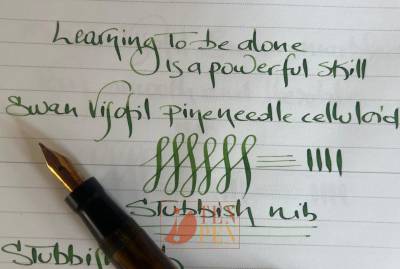 Learning To be alone
Is a powerful skill
Swan Visofil pineneedle celluloid
Stubbish nib
TEN PEN
Stubbish